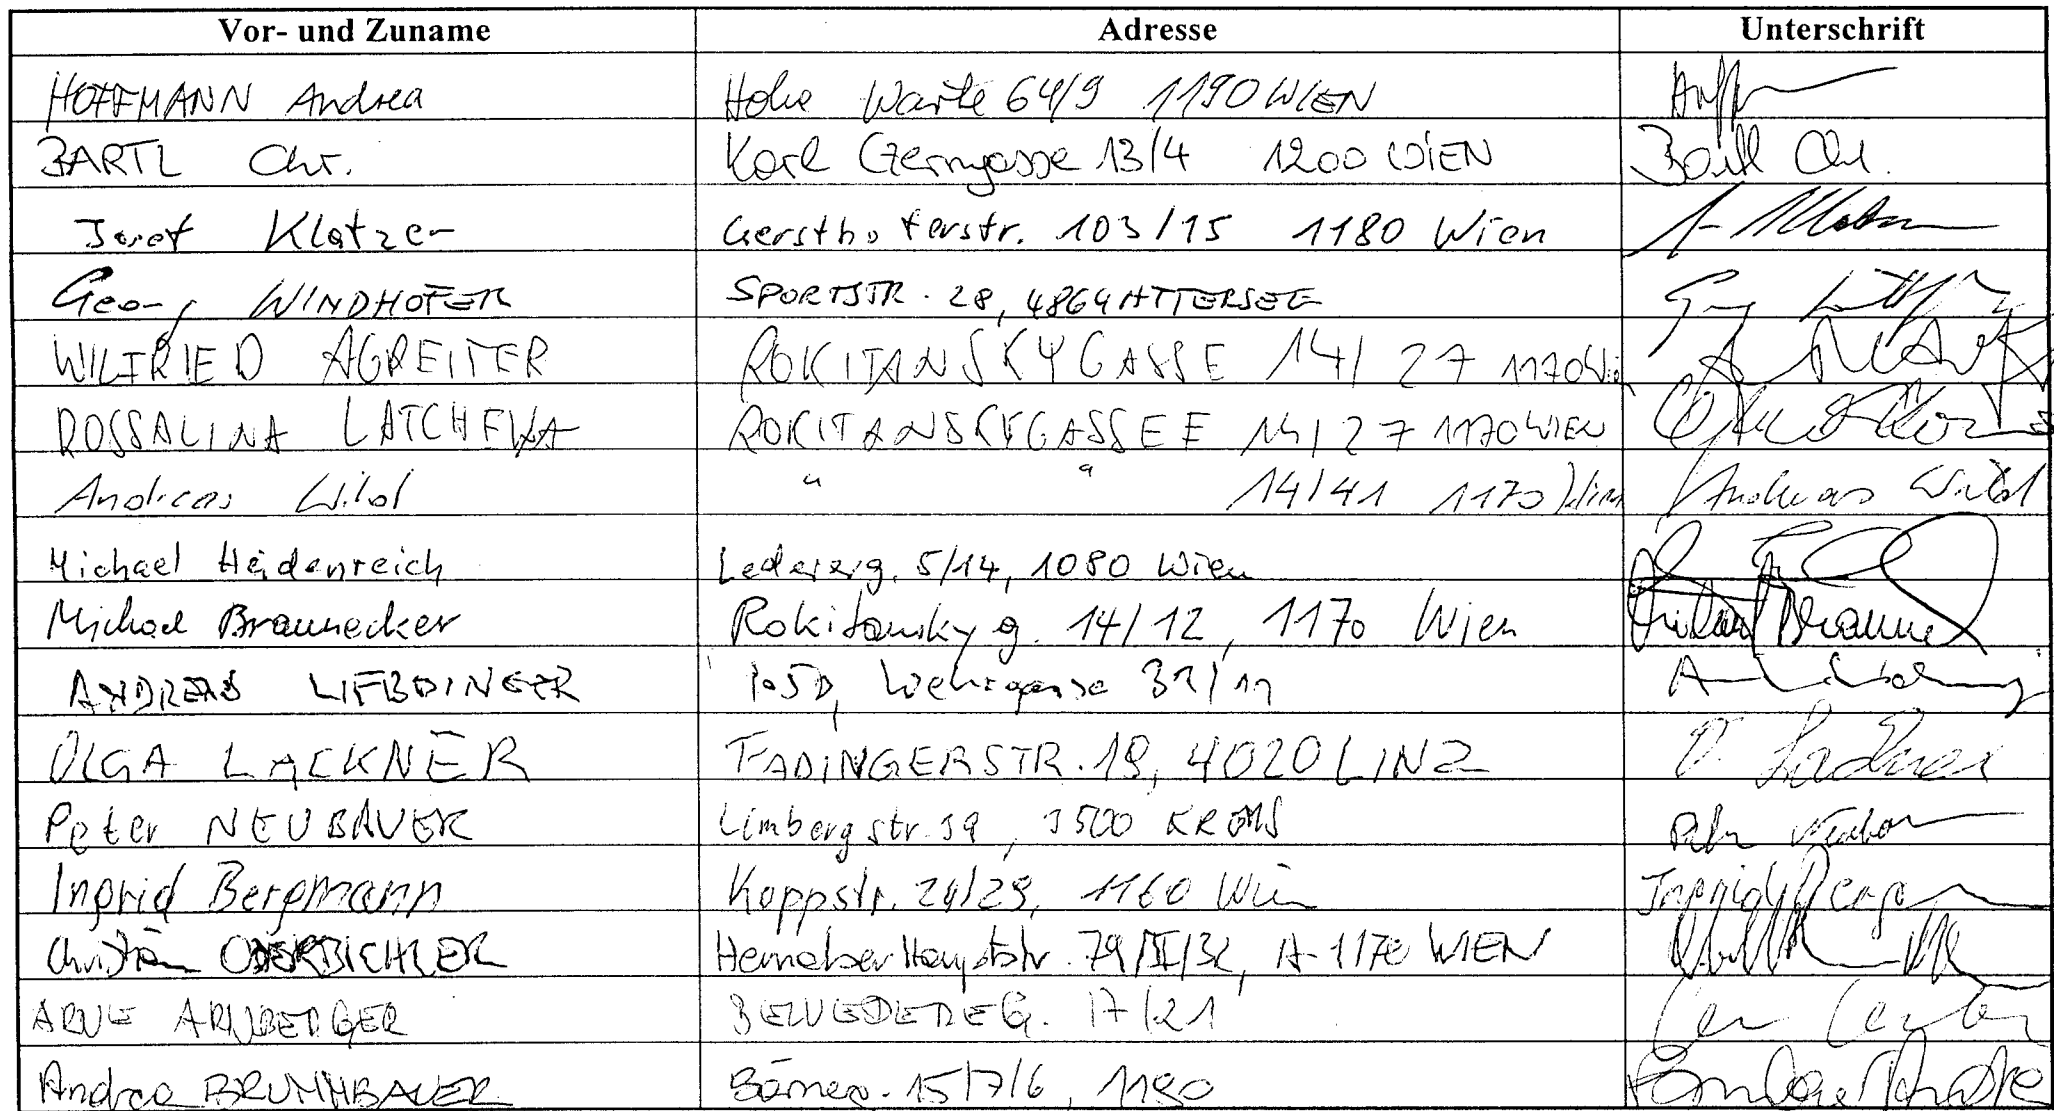 Vor- und Zuname Adresse Unterschrift
HOFFMANN Andrea Hohe Warte 64/9 1190 WIEN
BARTL Chr. Karl Czerngasse 13/4 1200 WIEN Bartl Chr.
Josef Klatzer Gersthoferstr. 103/15 1180 Wien
Georg WINDHOFER SPORTSTR. 28, 4864 ATTERSEE
WILFRIED AGREITER ROKITANSKYGASSE 14/27 1170 Wien
ROSSALINA LATCHEVA ROKITANSKYGASSEE 14/27 1170 WIEN
Andreas Wild " " 14/41 1170 Wien Andreas Wild
Michael Heidenreich Ledererg. 5/14, 1080 Wien
Michael Braunecker Rokitanskyg. 14/12, 1170 Wien
ANDREAS LIEBDINGER 1050, Wehrgasse
OLGA LACKNER FADINGERSTR. 19, 4020 LINZ O. Lackner
Peter NEUBAUER Limbergstr. 39, 3500 KREMS
Ingrid Bergmann Koppstr. 24/29, 1160 Wien
Christian Hernalser Hauptstr. 79/II/32, A-1170 WIEN
ARNE ARNBERGER BELVEDEREG. 17/21
Andrea BRUMMBAUER 15/7/6, 1190